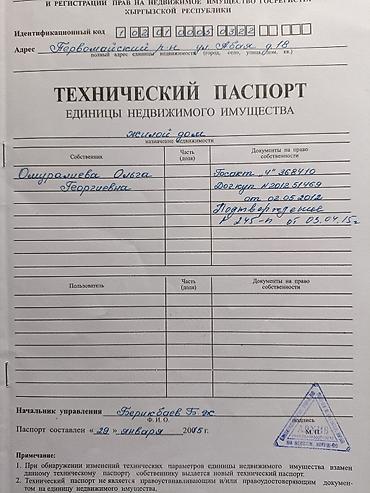 И РЕГИСТРАЦИИ ПРАВ НА НЕДВИЖИМОЕ ИМУЩЕСТВО ГОСРЕГИСТР
КЫРГЫЗСКОЙ РЕСПУБЛИКИ
Идентификационный код 1 02 01 0005 0322
Адрес Первомайский р-н ул Абая д 18
полный адрес единицы недвижимости (город, село, улица, дом, кв.)
ТЕХНИЧЕСКИЙ ПАСПОРТ
ЕДИНИЦЫ НЕДВИЖИМОГО ИМУЩЕСТВА
жилой дом
назначение недвижимости
Собственник Часть (доля) Документы на право собственности
Омуралиева Ольга Госакт "Ч" 368410
Георгиевна Дог.куп N2012 51469
от 02.05.2012
Подтверждение
N 245-п от 03.04.15г
Пользователь Часть (доля) Документы на право собственности
Начальник управления Берикбаев Б.
Ф. И. О. подпись
Паспорт составлен « 29 » января 2015 г. М.П.
Примечание:
1. При обнаружении изменений технических параметров единицы недвижимого имущества взамен
данному техническому паспорту собственнику выдается новый технический паспорт.
2. Технический паспорт не является правоустанавливающим и/или правоудостоверяющим документом
на единицу недвижимого имущества.